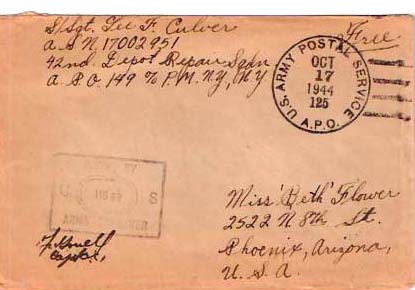 S/Sgt. Lee F. Culver
A.S.N. 17002951
42nd. Depot Repair Sqdn.
A.P.O. 149 % P.M. N.Y., N.Y.
Free
U.S. ARMY POSTAL SERVICE
OCT
17
1944
125
A.P.O.
U S
ARMY
Capt.
Miss 'Beth' Flower
2522 N. 8th St.
Phoenix, Arizona,
U.S.A.